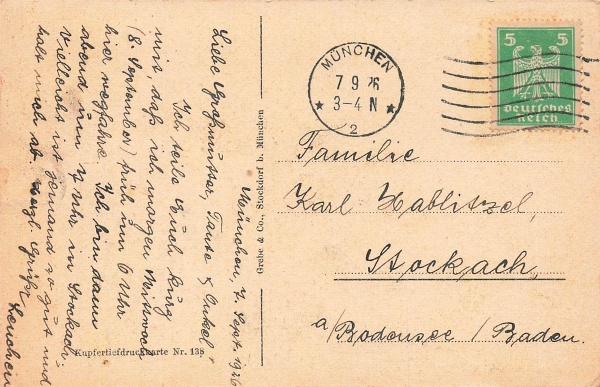 München, 7. Sept. 1926
Liebe Großmutter, Tante & Onkel!
Ich teile Euch kurz
mit, daß ich morgen Mittwoch
(8. September) früh um 6 Uhr
hier wegfahre. Ich bin dann
abend um 7 Uhr in Stockach.
Vielleicht ist jemand so gut und
holt mich ab. Herzl. Grüße
Kupfertiefdruckkarte Nr. 138
Grebe & Co., Stockdorf b. München
MÜNCHEN
7 9 26
3-4 N
2
5 5
Deutsches
Reich
Familie
Karl Hablitzel,
Stockach,
a/Bodensee / Baden.